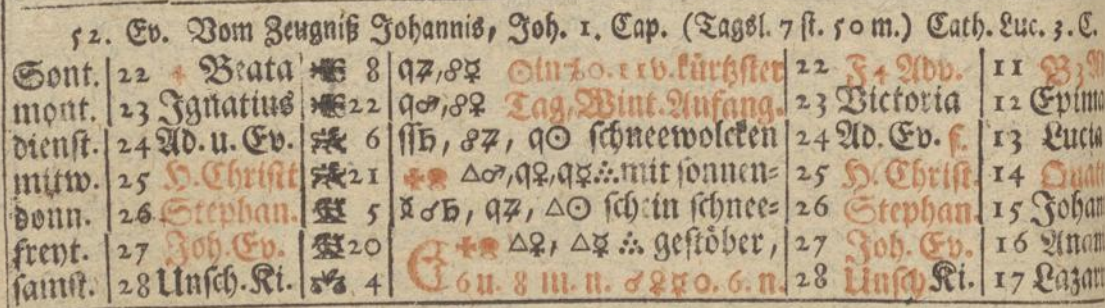 52. Ev. Vom Zeugniß Johannis, Joh. 1. Cap. (Tagsl. 7 st. 50 m.) Cath. Luc. 3. C.
Sont. 22 Beata 8 q♃, ☍☿ 0. 11 v. kürtzster 22 F 4 Adv. 11 B 3
mont. 23 Ignatius 22 q♂, ☍♀ Tag, Wint. Anfang. 23 Victoria 12 Epim
dienst. 24 Ad. u. Ev. 6 ss♄, ☍♃, q☉ schneewolcken 24 Ad. Ev. f. 13 Lucia
mitw. 25 H. Christt 21 △♂, q♀, q☿ ∴ mit sonnen= 25 H. Christ. 14 Quat
donn. 26 Stephan. 5 ☌♄, q♃, △☉ schein schnee= 26 Stephan. 15 Johan
freyt. 27 Joh. Ev. 20 △♀, △☿ ∴ gestöber, 27 Joh. Ev. 16 Anan
samst. 28 Unsch. Ki. 4 ☾ 6 u. 8 m. n. ☌♀☿ 0. 6. n. 28 Unsch Ki. 17 Lazar